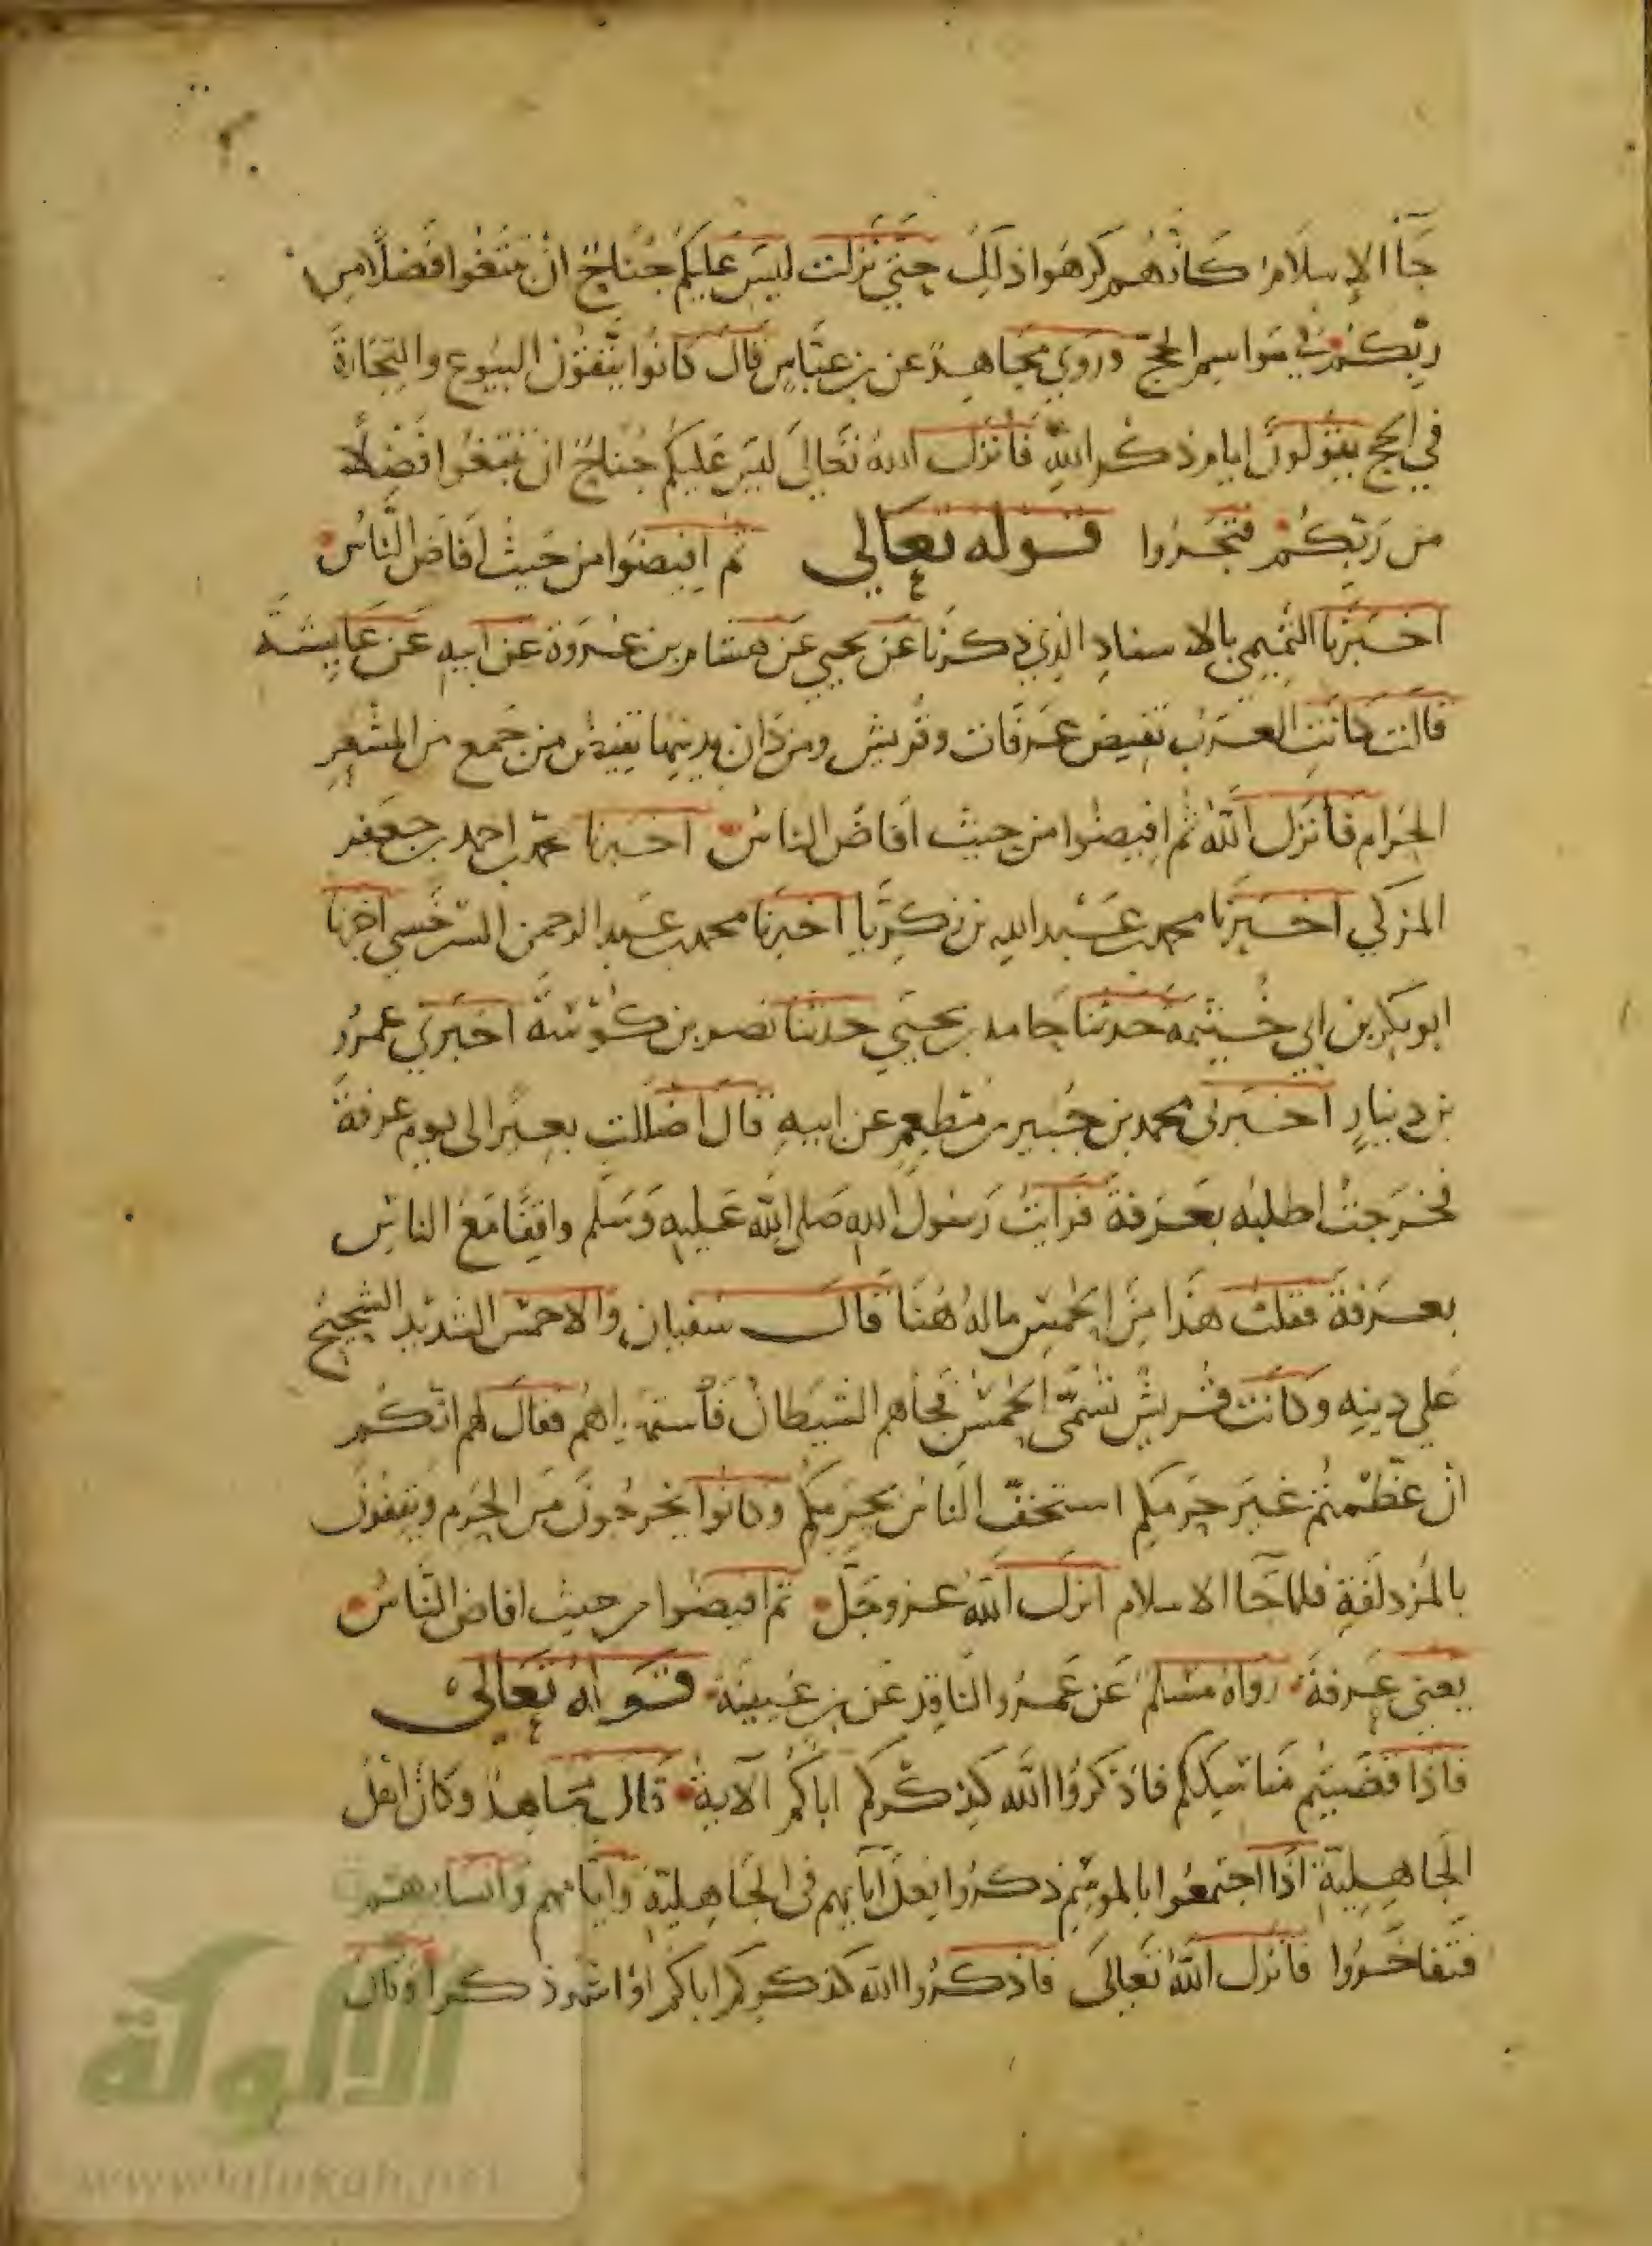 جآ الإسلام كانهم كرهوا ذلك حتى نزلت ليس عليكم جناح ان تبتغوا فضلا من
ربكم في مواسم الحج وروي مجاهد عن بن عباس قال كانوا يتقون البيوع والتجارة
في الحج يقولون ايام ذكر الله فأنزل الله تعالى ليس عليكم جناح ان تبتغوا فضلا
من ربكم فتجروا قوله تعالى ثم افيضوا من حيث افاض الناس
اخبرنا التميمي بالاسناد الذي ذكرنا عن يحيي عن هشام بن عروة عن ابيه عن عايشة
قالت كانت العرب تفيض عرفات وقريش ومن دان بدينها تفيض من جمع من المشعر
الحرام فأنزل الله ثم افيضوا من حيث افاض الناس اخبرنا محمد بن احمد بن جعفر
المزكي اخبرنا محمد بن عبد الله بن زكريا اخبرنا محمد بن عبد الرحمن السرخسي اخبرنا
ابو بكر بن ابي خيثمة حدثنا حامد بن يحيي حدثنا نصر بن كوشة اخبرني عمرو
بن دينار اخبرني محمد بن جبير بن مطعم عن ابيه قال اضللت بعيرا لى يوم عرفة
فخرجت اطلبه بعرفة فرايت رسول الله صلى الله عليه وسلم واقفا مع الناس
بعرفة فقلت هذا من الحمس ماله هنا قال سفيان والاحمس الشديد الشحيح
على دينه وكانت قريش تسمى الحمس فجاهم الشيطان فأستهواهم فقال لهم انكم
ان عظمتم غير حرمكم استخف الناس بحرمكم وكانوا لا يخرجون من الحرم ويقفون
بالمزدلفة فلما جآ الاسلام انزل الله عز وجل ثم افيضوا من حيث افاض الناس
يعني عرفة رواه مسلم عن عمرو الناقد عن بن عيينة قوله تعالى
فاذا قضيتم مناسككم فاذكروا الله كذكركم اباكم الآية قال مجاهد وكان اهل
الجاهلية اذا اجتمعوا بالموسم ذكروا فعل آبايهم في الجاهلية وايامهم وانسابهم
فتفاخروا فأنزل الله تعالى فاذكروا الله كذكركم اباكم او اشد ذكرا وقال
الألوكة
www.alukah.net